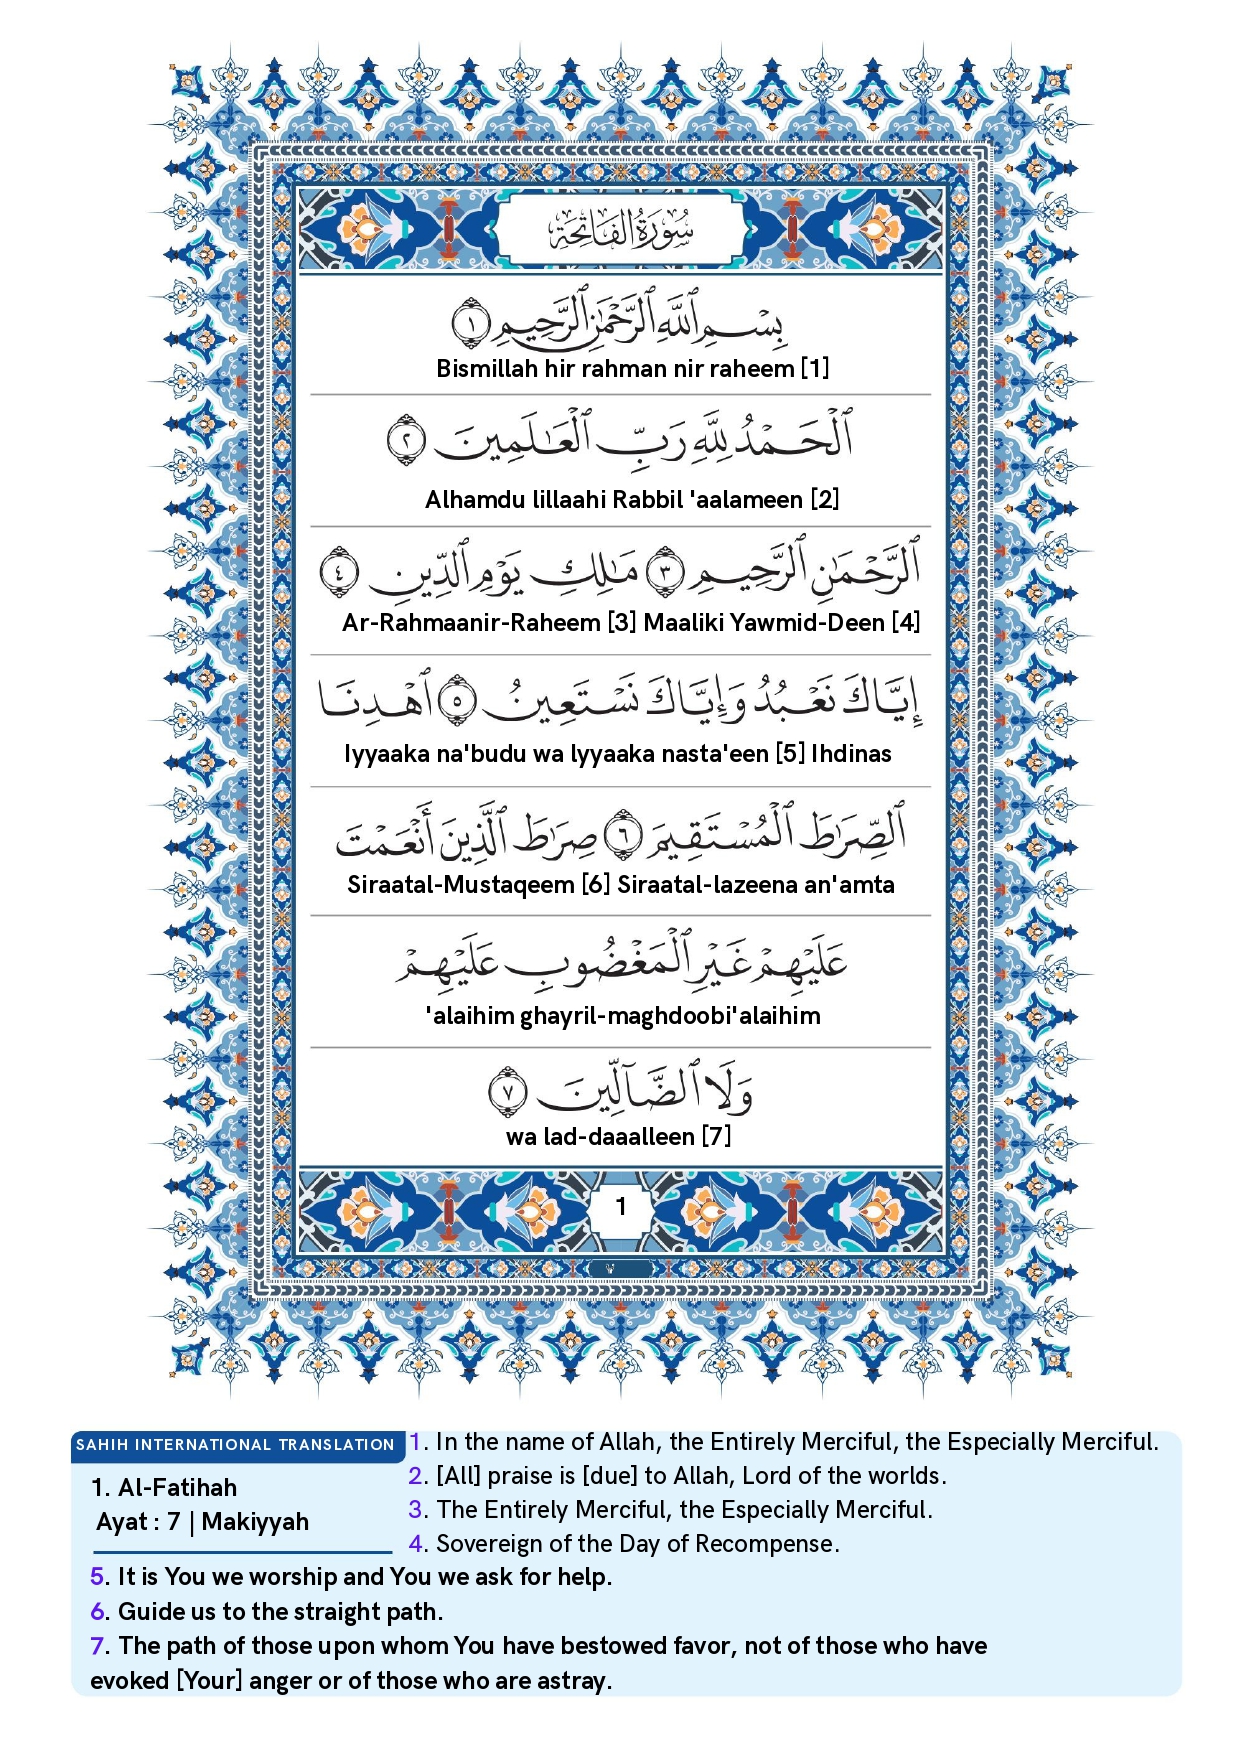 سُورَةُ الفَاتِحَةِ
بِسْمِ ٱللَّهِ ٱلرَّحْمَٰنِ ٱلرَّحِيمِ ١
Bismillah hir rahman nir raheem [1]
ٱلْحَمْدُ لِلَّهِ رَبِّ ٱلْعَٰلَمِينَ ٢
Alhamdu lillaahi Rabbil 'aalameen [2]
ٱلرَّحْمَٰنِ ٱلرَّحِيمِ ٣ مَٰلِكِ يَوْمِ ٱلدِّينِ ٤
Ar-Rahmaanir-Raheem [3] Maaliki Yawmid-Deen [4]
إِيَّاكَ نَعْبُدُ وَإِيَّاكَ نَسْتَعِينُ ٥ ٱهْدِنَا
Iyyaaka na'budu wa lyyaaka nasta'een [5] Ihdinas
ٱلصِّرَٰطَ ٱلْمُسْتَقِيمَ ٦ صِرَٰطَ ٱلَّذِينَ أَنْعَمْتَ
Siraatal-Mustaqeem [6] Siraatal-lazeena an'amta
عَلَيْهِمْ غَيْرِ ٱلْمَغْضُوبِ عَلَيْهِمْ
'alaihim ghayril-maghdoobi'alaihim
وَلَا ٱلضَّآلِّينَ ٧
wa lad-daaalleen [7]
1
SAHIH INTERNATIONAL TRANSLATION
1. Al-Fatihah
Ayat : 7 | Makiyyah
1. In the name of Allah, the Entirely Merciful, the Especially Merciful.
2. [All] praise is [due] to Allah, Lord of the worlds.
3. The Entirely Merciful, the Especially Merciful.
4. Sovereign of the Day of Recompense.
5. It is You we worship and You we ask for help.
6. Guide us to the straight path.
7. The path of those upon whom You have bestowed favor, not of those who have
evoked [Your] anger or of those who are astray.